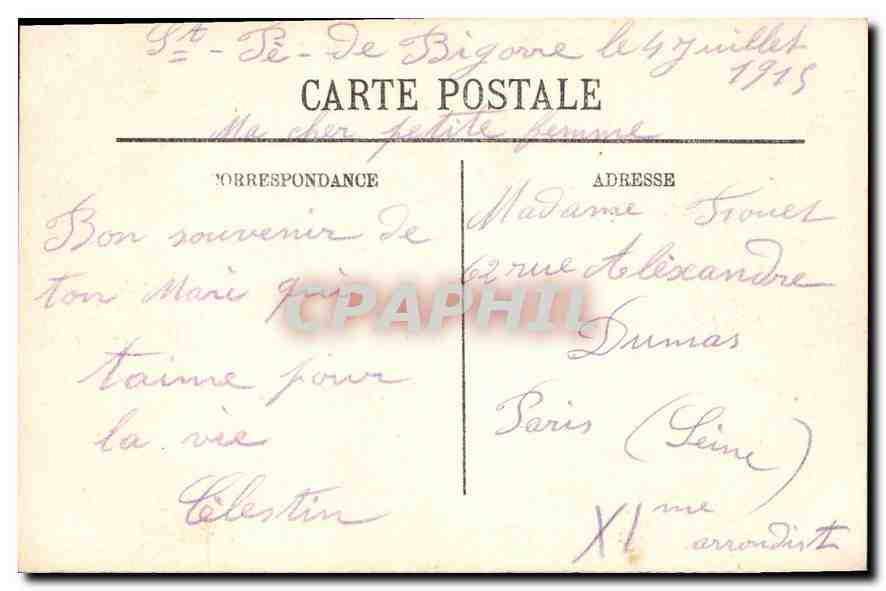 St-Pè-de Bigorre le 4 Juillet
1915
CARTE POSTALE
Ma cher petite femme
CORRESPONDANCE
Bon souvenir de
ton Mari qui
taime pour
la vie
Célestin
ADRESSE
Madame
62 rue Aléxandre
Dumas
Paris (Seine)
XIme
arrondist
CPAPHIL